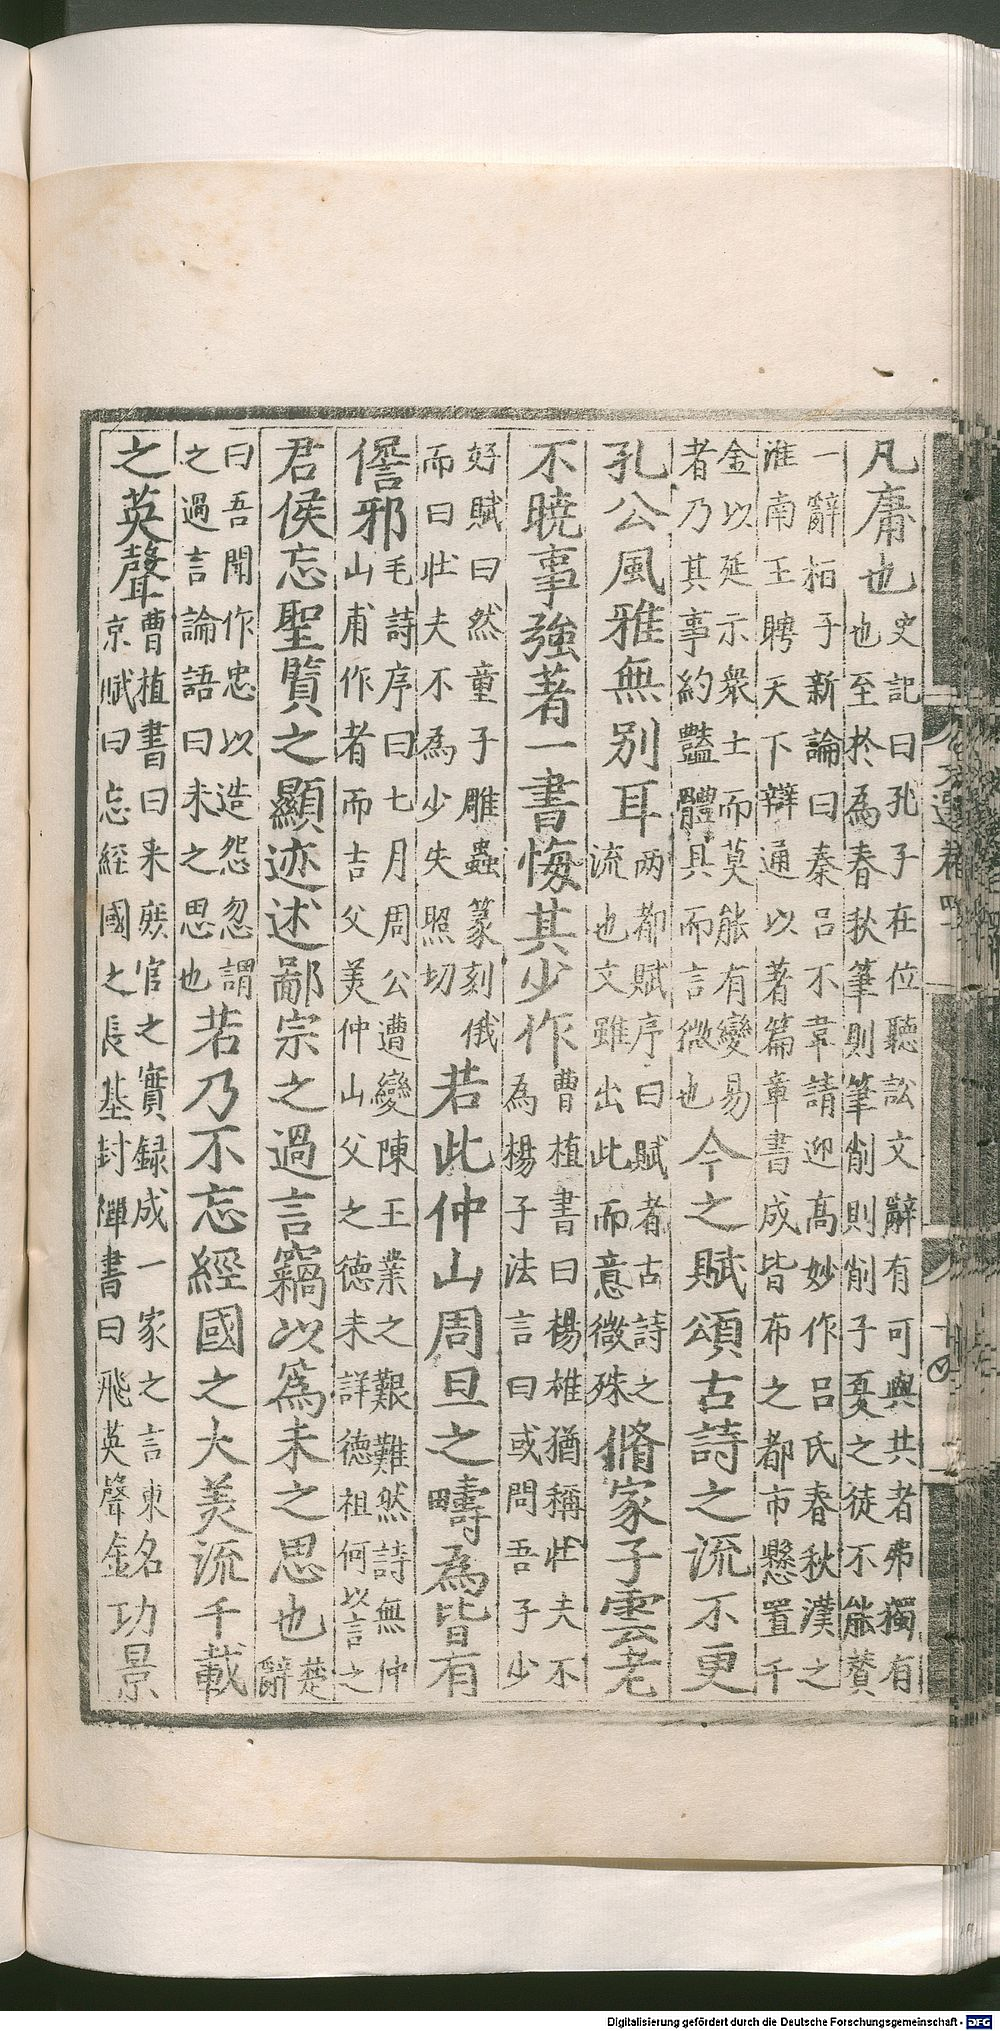 凡庸也史記曰孔子在位聽訟文辭有可與共者弗獨有
也至於為春秋筆則筆削則削子夏之徒不能贊
一辭栢子新論曰秦呂不韋請迎髙妙作呂氏春秋漢之
淮南王聘天下辯通以著篇章書成皆布之都市懸置千
金以延示衆士而莫能有變易
者乃其事約豔體具而言微也今之賦頌古詩之流不更
孔公風雅無別耳两都賦序曰賦者古詩之
流也文雖出此而意微殊脩家子雲老
不曉事強著一書悔其少作曹植書曰楊雄猶稱壯夫不
為楊子法言曰或問吾子少
好賦曰然童子雕蟲篆刻俄
而曰壯夫不為少失照切若此仲山周旦之疇為皆有
邪毛詩序曰七月周公遭變陳王業之艱難然詩無仲
山甫作者而吉父美仲山父之德未詳德祖何以言之
君侯忘聖賢之顯迹述鄙宗之過言竊以為未之思也楚
辭
曰吾聞作忠以造怨忽謂
之過言論語曰未之思也若乃不忘經國之大美流千載
之英聲曹植書曰采庶官之實録成一家之言東
京賦曰忘經國之長基封禪書曰飛英聲銘功景
Digitalisierung gefördert durch die Deutsche Forschungsgemeinschaft - DFG